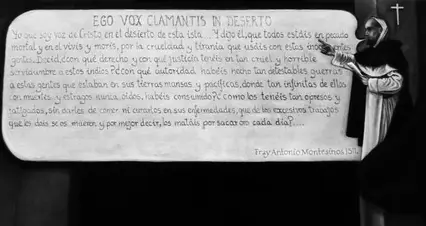 EGO VOX CLAMANTIS IN DESERTO
Yo que soy voz de Cristo en el desierto de esta isla.... Y dijo él, que todos estáis en pecado
mortal y en el vivís y morís, por la crueldad y tiranía que usáis con estas inocentes
gentes. Decid, ¿con qué derecho y con qué justicia tenéis en tan cruel y horrible
servidumbre a estos indios? ¿con qué autoridad habéis hecho tan detestables guerras
a estas gentes que estaban en sus tierras mansas y pacíficas, donde tan infinitas de ellas
con muertes y estragos nunca oídos, habéis consumido? ¿como los tenéis tan opresos y
fatigados, sin darles de comer ni curarlos en sus enfermedades, que de los excesivos trabajos
que les dais se os mueren y por mejor decir, los matáis por sacar oro cada día?....
Fray Antonio Montesinos